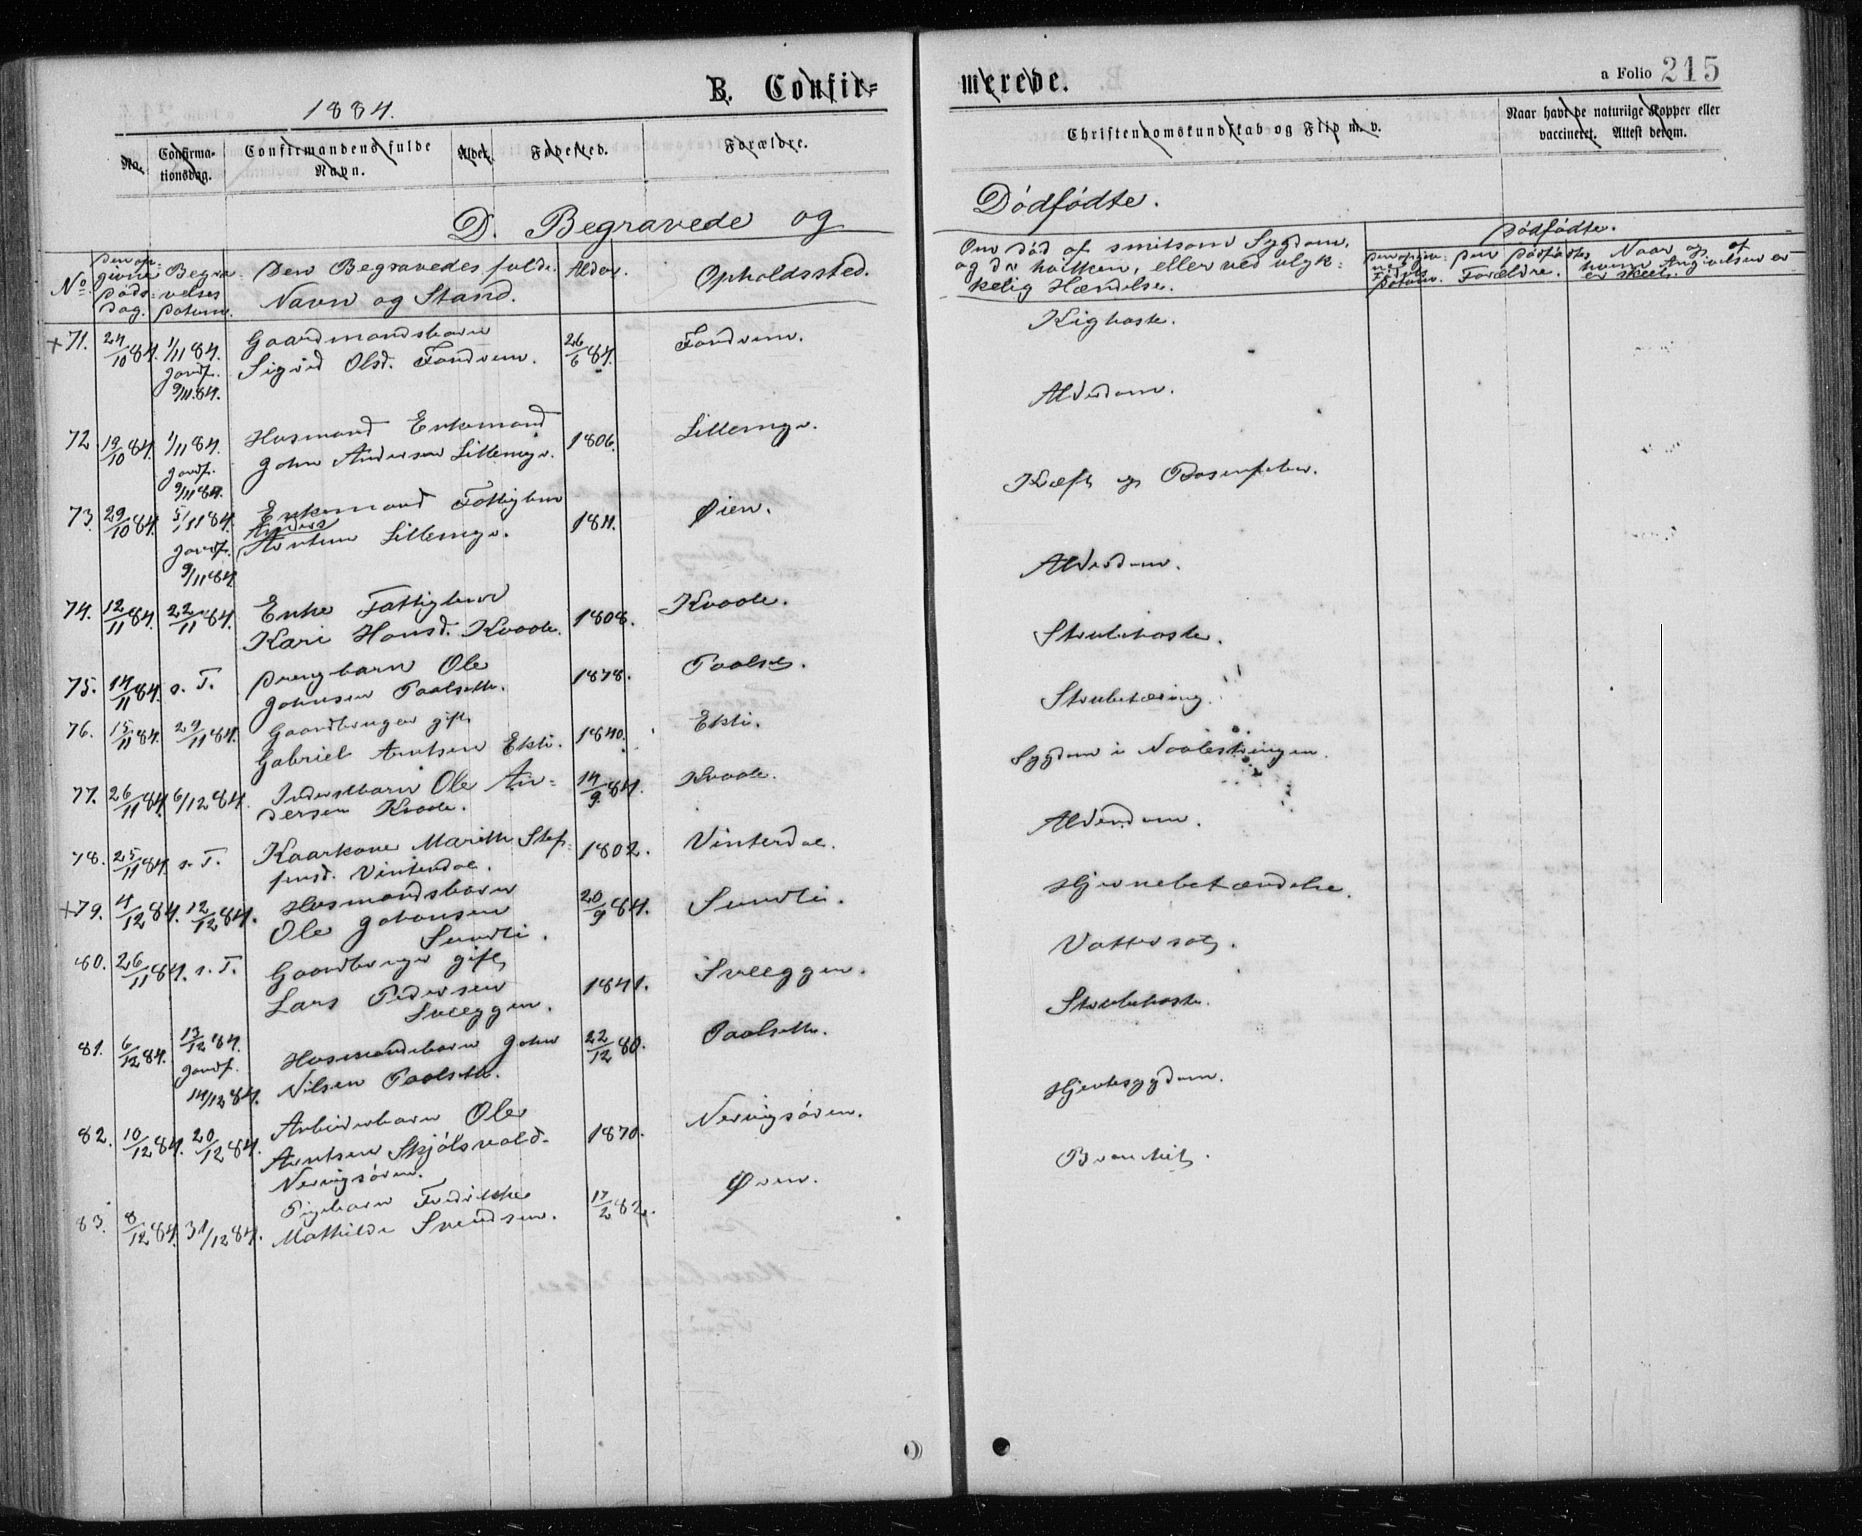 B. Confir-
merede.
a Folio 215
1884.
No.
Confirma-
tionsdag.
Confirmandens fulde
Navn.
Alder.
Fødested.
Forældre.
Christendomskundskab og Flid m. v.
Naar havt de naturlige Kopper eller
vaccineret. Attest derom.
D. Begravede og
Dødfødte.
No.
Den op-
givne
Døds-
dag.
Begra-
velses
Datum.
Den Begravedes fulde
Navn og Stand.
Alder.
Opholdssted.
Om død af smitsom Sygdom,
og da hvilken, eller ved ulyk-
kelig Hændelse.
Dødfødte.
Den opgiv-
ne
Fødsels
Datum.
Den Dødfødtes
Forældre.
Naar og af
hvem Angivelsen er
skeet.
+71. 24/10 84. 1/11 84. Gaardmandsbarn 26/6 84. Kighoste.
Jordf. 9/11 84. Sigrid Olsd.
72. 19/10 84. 1/11 84. Husmand Enkemand 1806. Alderdom.
Jordf. 9/11 84. John Andersen
73. 29/10 84. 5/11 84. Enkemand Fattiglem 1811. Øien. Kræft
Jordf. 9/11 84. Anders
74. 12/11 84. 22/11 84. Enke Fattiglem 1808. Kvaale. Alderdom.
Kari Hansd. Kvaale.
75. 14/11 84. s. T. Drengbarn Ole 1878. Strubehoste.
Johnsen Paalseth.
76. 15/11 84. 29/11 84. Gaardbruger gift 1840. Ekli. Strubetæring.
Gabriel Arntsen Ekli.
77. 26/11 84. 6/12 84. Inderstbarn Ole An- 14/9 84. Kvaale. Sygdom i
dersen Kvaale.
78. 25/11 84. s. T. Kaarkone Marith Stef- 1802. Vinterdal. Alderdom.
fensd. Vinterdal.
+79. 4/12 84. 12/12 84. Husmandsbarn 20/9 84. Sundli. Hjernebetændelse.
Ole Johansen
Sundli.
80. 26/11 84. s. T. Gaardbruger gift 1841. Sveeggen. Vattersot.
Lars Pedersen
Sveeggen.
81. 6/12 84. 13/12 84. Husmandsbarn John 22/12 80. Paalseth. Strubehoste.
Jordf. 14/12 84. Nilsen Paalseth.
82. 10/12 84. 20/12 84. Arbeiderbarn Ole 1870. Nervigsøren. Hjertesygdom.
Arntsen Skjølsvold-
Nervigsøren.
83. 8/12 84. 31/12 84. Pigebarn Fredrikke 17/2 82. Øren. Bronchit.
Mathilde Svendsen.